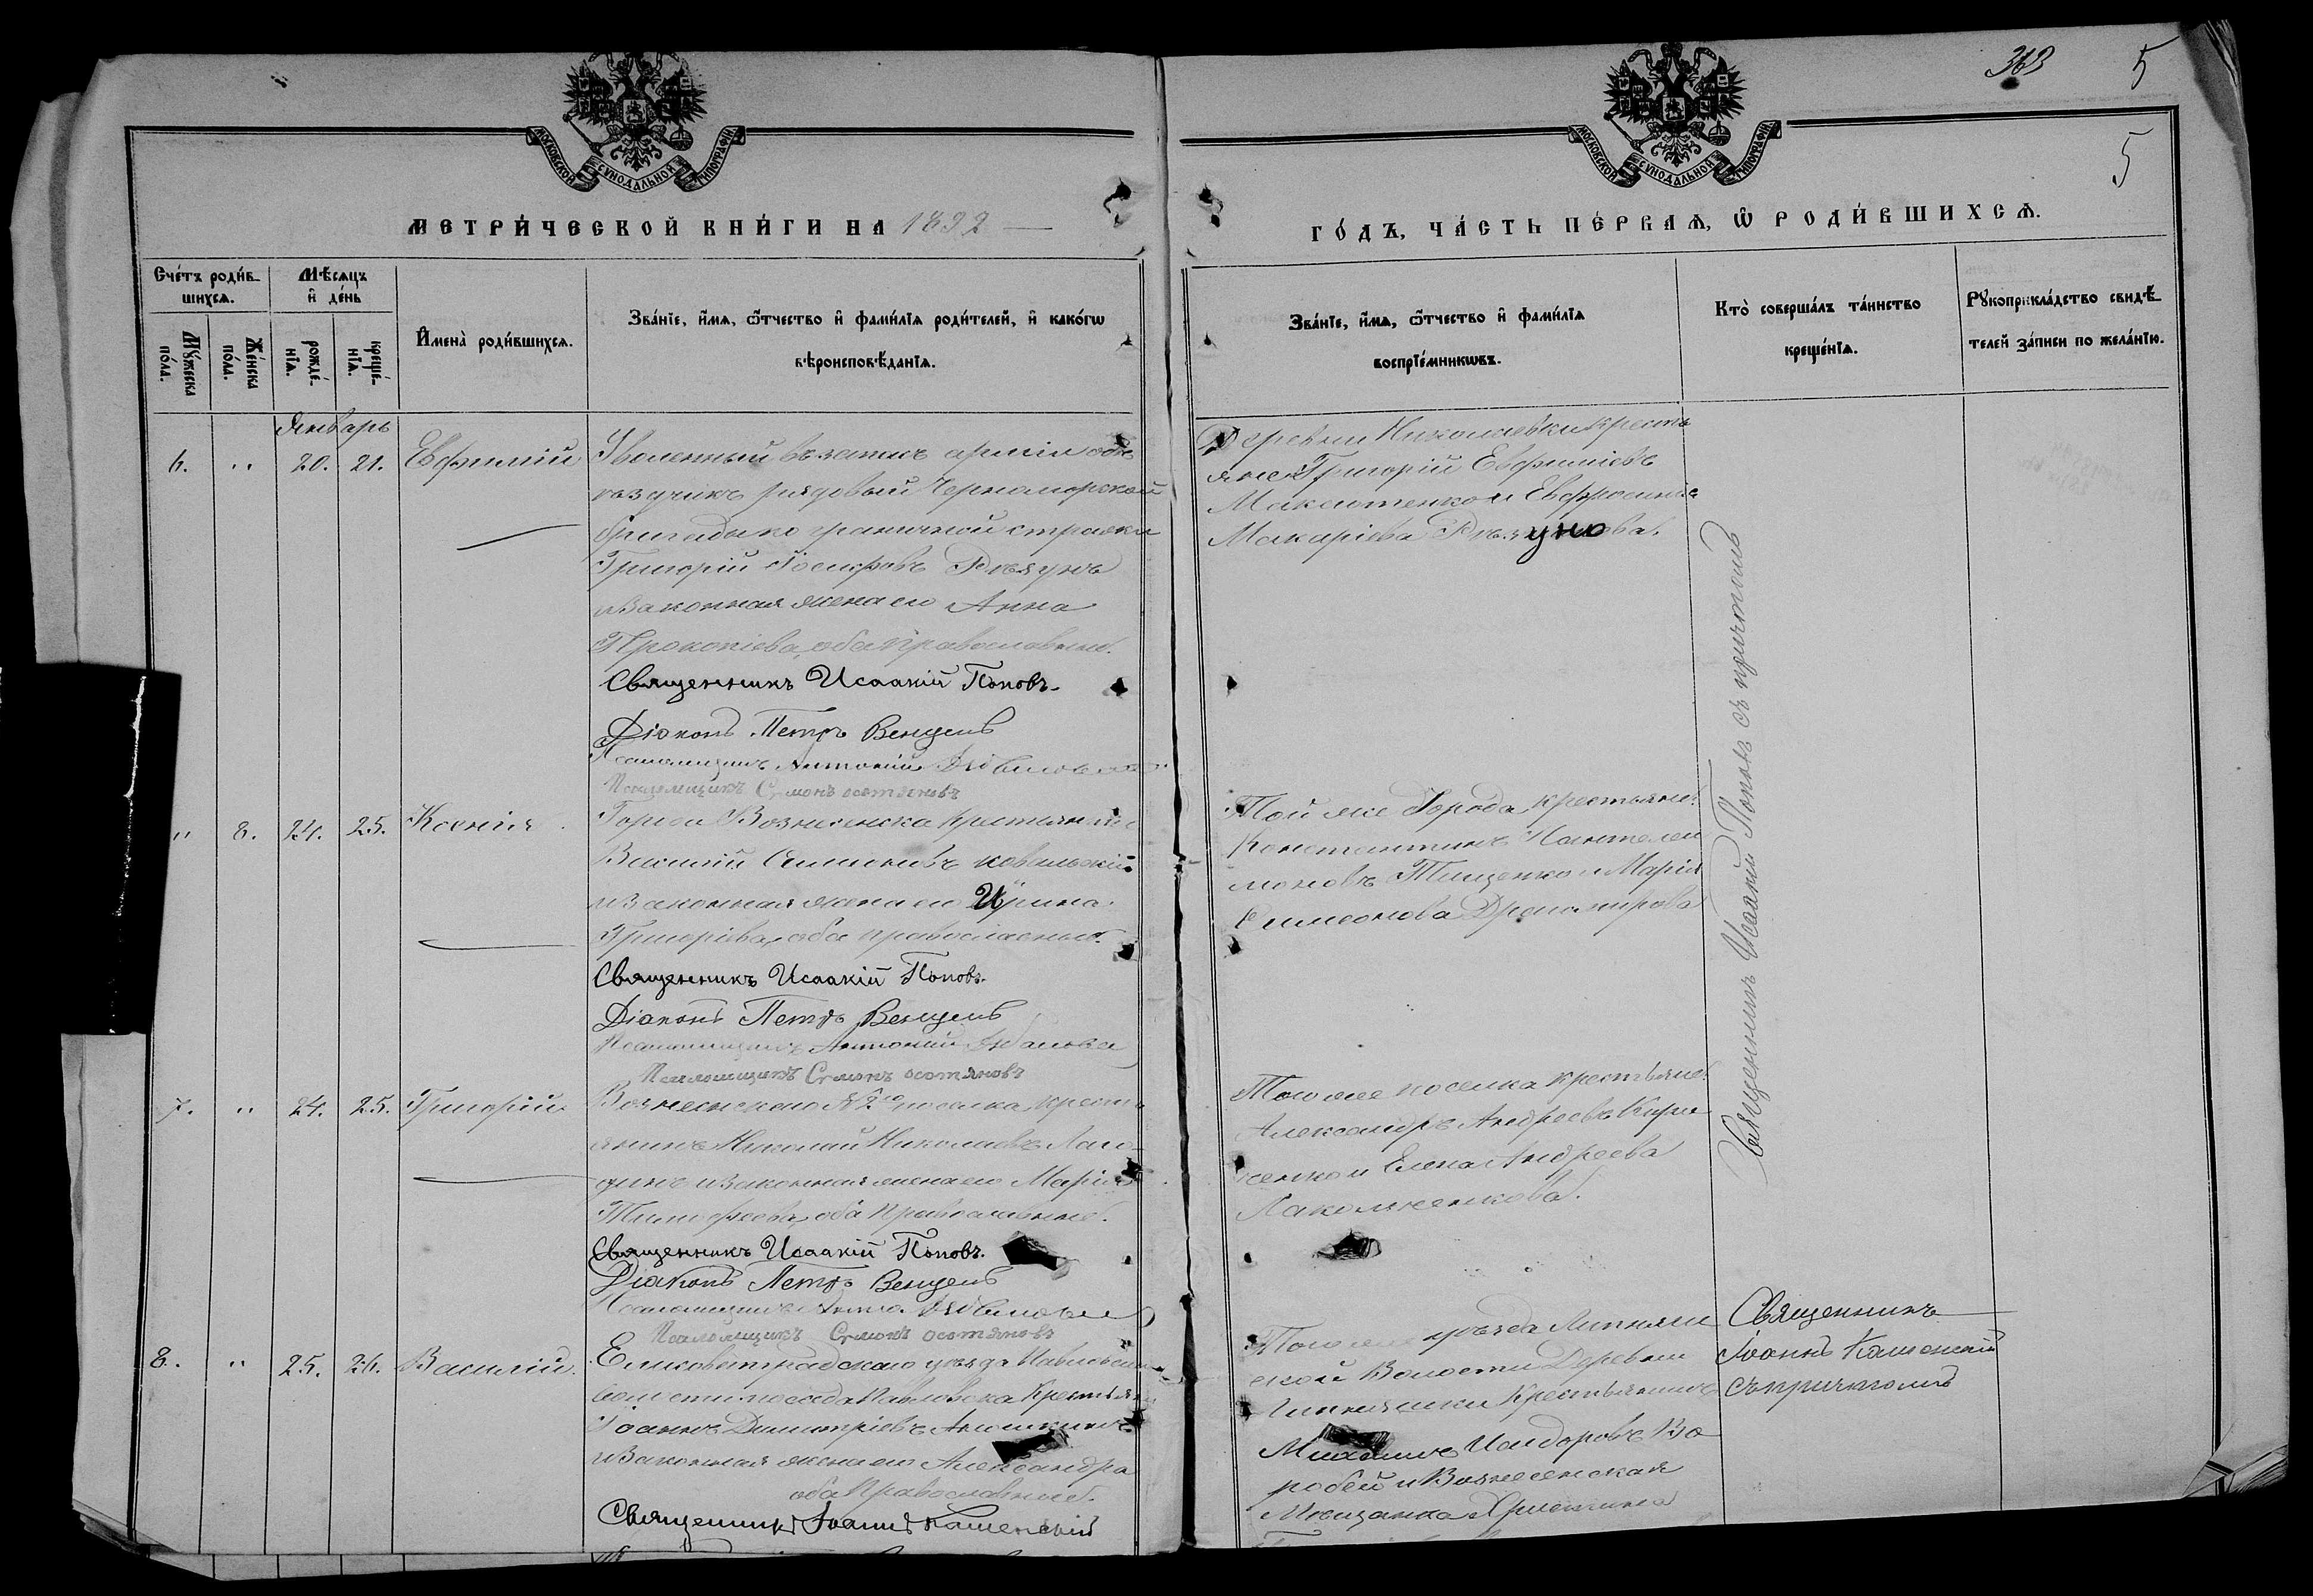 363 5
5
МОСКОВСКОЙ СѴНОДАЛЬНОЙ ТИПОГРАФІИ
МОСКОВСКОЙ СѴНОДАЛЬНОЙ ТИПОГРАФІИ
МЕТРИ́ЧЕСКОЙ КНИ́ГИ НА 1892
ГО́ДЪ, ЧА́СТЬ ПЕ́РВАѦ, Ѿ РОДИ́ВШИХСѦ.
Сче́тъ роди́вшихсѧ.
Мꙋ́жеска по́ла.
Же́нска по́ла.
Мѣ́сѧцъ и҆ де́нь
рожде́нїѧ.
креще́нїѧ.
И҆мена̀ роди́вшихсѧ.
Зва́нїе, и҆́мѧ, ѻ҆́тчество и҆ фами́лїѧ роди́телей, и҆ како́гѡ
вѣроисповѣ́данїѧ.
Зва́нїе, и҆́мѧ, ѻ҆́тчество и҆ фами́лїѧ
воспрїе́мникѡвъ.
Кто̀ соверша́лъ та́инство
креще́нїѧ.
Рꙋкоприкла́дство свидѣ́телей за́писи по жела́нїю.
Январь
6. " 20. 21. Евфимій
Уволенный въ запасъ арміи объ
ездчикъ рядовый Черноморской
бригады пограничной стражи
Григорій Іосифовъ Рѣзунъ
и законная жена его Анна
Прокопіева, оба православные.
Священникъ Исаакій Поповъ.
Діаконъ Петръ Венцель
Псаломщикъ Антоній
Псаломщикъ Сѵмонъ Остяновъ
Деревни Николаевки кресть
яне Григорій Евфиміевъ
Максютенко и Евфросинія
Макаріева Рѣзунова.
" 8. 24. 25. Ксенія
Города Вознесенска крестьянинъ
Василій Симеоновъ Ковальскій
и законная жена его Ирина
Григоріева, оба православные.
Священникъ Исаакій Поповъ.
Діаконъ Петръ Венцель
Псаломщикъ Антоній
Псаломщикъ Сѵмонъ Остяновъ
Той же Города крестьяне
Константинъ Пантелеи
моновъ Тищенко и Марія
Симеонова Драгомирова
7. " 24. 25. Григорій
Вознесенского № 2го поселка кресть
янинъ Николай Николаевъ
и законная жена его Марія
Тимофеева, оба православные.
Священникъ Исаакій Поповъ.
Діаконъ Петръ Венцель
Псаломщикъ
Псаломщикъ Сѵмонъ Остяновъ
Того же поселка крестьяне
Александръ Андреевъ Кири
ченко и Елена Андреева
Лакомженкова.
Священникъ Исаакій Поповъ съ причтомъ
8. " 25. 26. Василій
Елисаветградскаго уѣзда Павловской
волости посада Павловска крестьянинъ
Іоаннъ Димитріевъ
и законная жена его Александра
оба Православные.
Священникъ Іоаннъ Каменскій
Того же уѣзда Липняж
ской Волости Деревни
Крестьянинъ
Михаилъ Исидоровъ Во
робей и Вознесенская
Мѣщанка Христина
Священникъ
Іоаннъ Каменскій
съ причтомъ